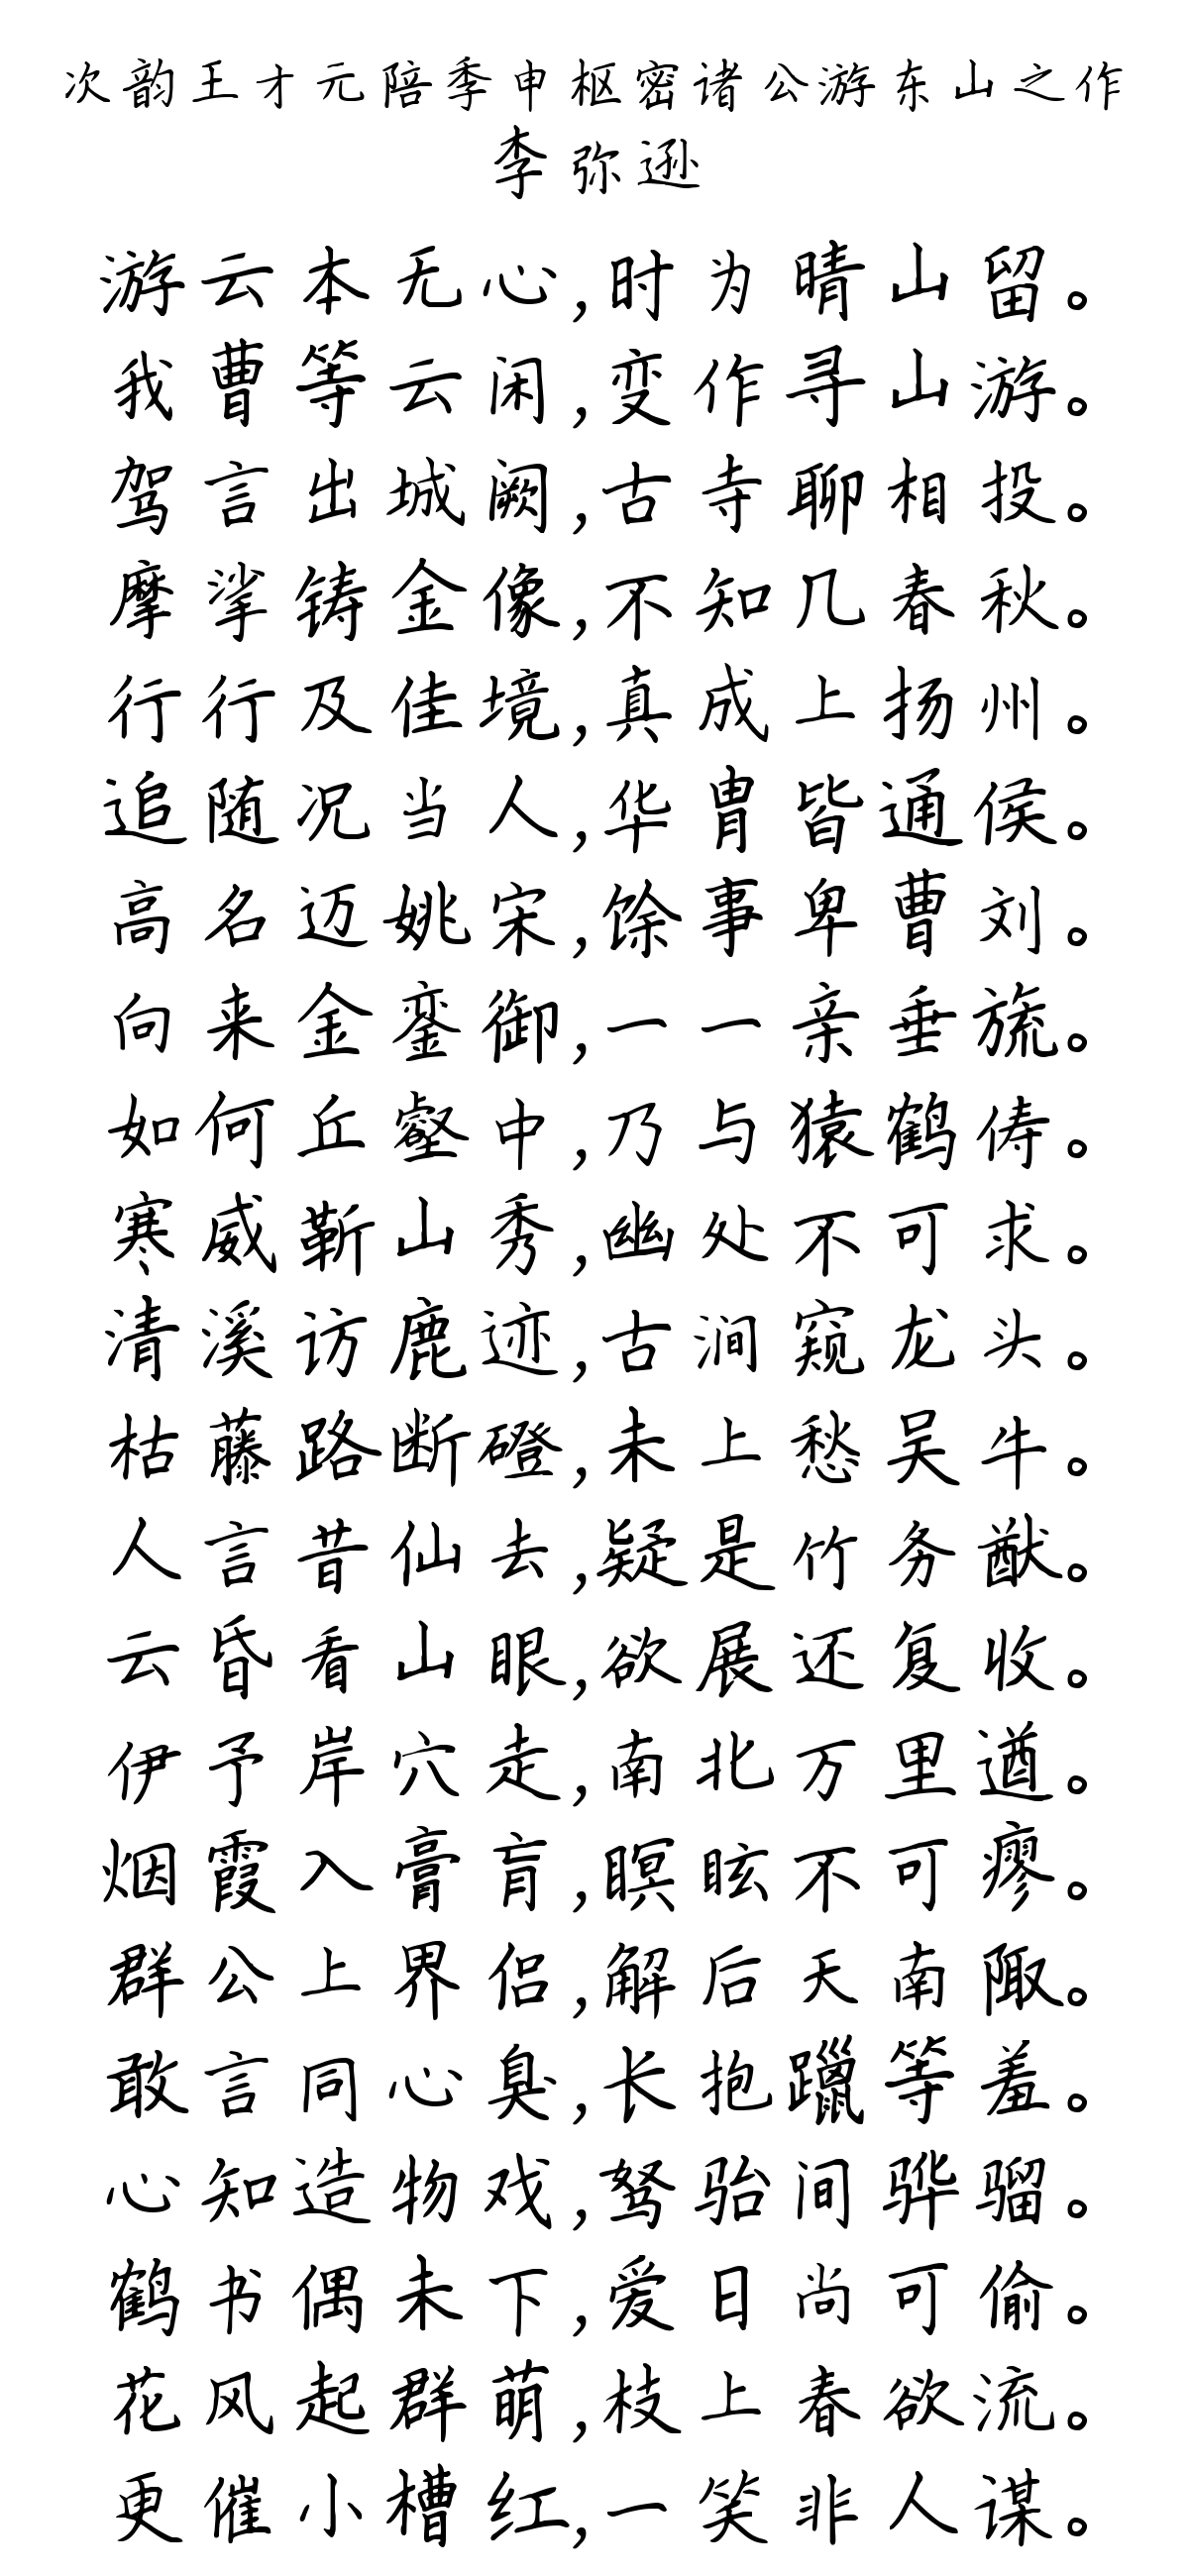 次韵王才元陪季申枢密诸公游东山之作
李弥逊
游云本无心,时为晴山留。
我曹等云闲,变作寻山游。
驾言出城阙,古寺聊相投。
摩挲铸金像,不知几春秋。
行行及佳境,真成上扬州。
追随况当人,华胄皆通侯。
高名迈姚宋,馀事卑曹刘。
向来金銮御,一一亲垂旒。
如何丘壑中,乃与猿鹤俦。
寒威靳山秀,幽处不可求。
清溪访鹿迹,古涧窥龙头。
枯藤路断磴,未上愁吴牛。
人言昔仙去,疑是竹务猷。
云昏看山眼,欲展还复收。
伊予岸穴走,南北万里遒。
烟霞入膏肓,瞑眩不可瘳。
群公上界侣,解后天南陬。
敢言同心臭,长抱躐等羞。
心知造物戏,驽骀间骅骝。
鹤书偶未下,爱日尚可偷。
花风起群萌,枝上春欲流。
更催小槽红,一笑非人谋。